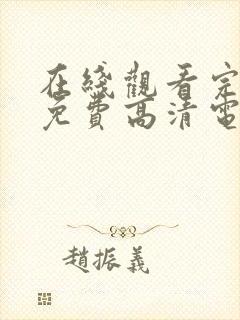 在綫觀看完
免費高清電
趙振義